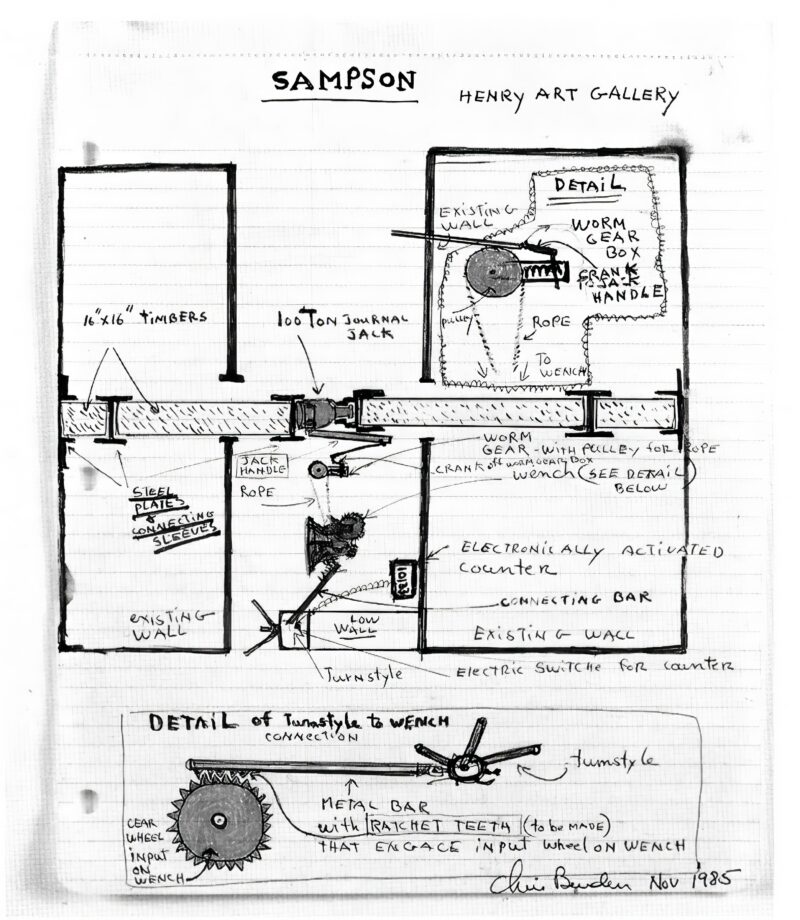 SAMPSON
HENRY ART GALLERY
DETAIL
EXISTING
WALL
WORM
GEAR
BOX
CRANK
TO JACK
HANDLE
PULLEY
ROPE
TO
WENCH
16"x16" TIMBERS
100 TON JOURNAL
JACK
WORM
GEAR - WITH PULLEY FOR ROPE
CRANK off WORM GEAR BOX
JACK
HANDLE
wench (SEE DETAIL)
BELOW
ROPE
STEEL
PLATES
&
CONNECTING
SLEEVES
ELECTRONICALLY ACTIVATED
COUNTER
CONNECTING BAR
EXISTING
WALL
LOW
WALL
EXISTING WALL
Turnstyle
ELECTRIC SWITCHE FOR COUNTER
DETAIL of Turnstyle to WENCH
CONNECTION
turnstyle
METAL BAR
with RATCHET TEETH (to be MADE)
THAT ENGAGE INPUT wheel ON WENCH
GEAR
WHEEL
INPUT
ON
WENCH
Chris Burden Nov 1985